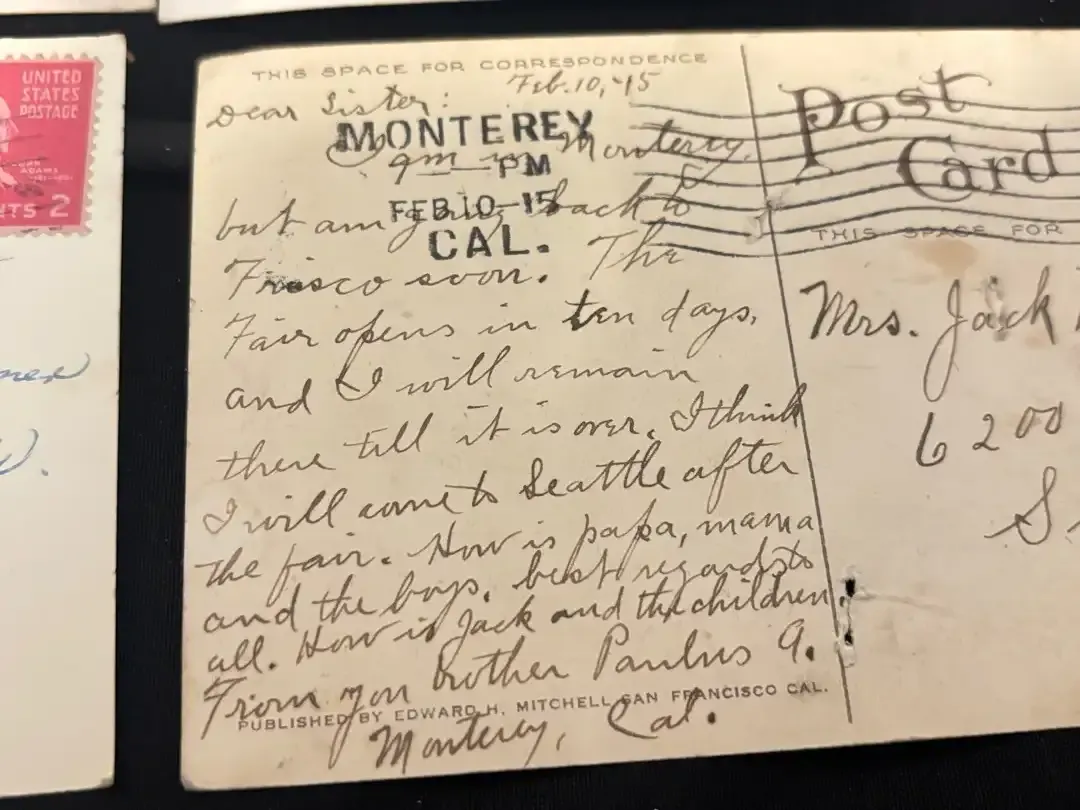 UNITED
STATES
POSTAGE
JOHN
ADAMS
CENTS 2
THIS SPACE FOR CORRESPONDENCE
Feb. 10, -15
Dear Sister:
MONTEREY
PM
FEB 10-15
CAL.
I am in Monterey,
but am going back to
Frisco soon. The
Fair opens in ten days,
and I will remain
there till it is over. I think
I will come to Seattle after
the fair. How is papa, mama
and the boys. best regards to
all. How is Jack and the children.
From you brother Paulus A.
PUBLISHED BY EDWARD H. MITCHELL SAN FRANCISCO CAL.
Monterey, Cal.
Post
Card
THIS SPACE FOR
Mrs. Jack
6200
S